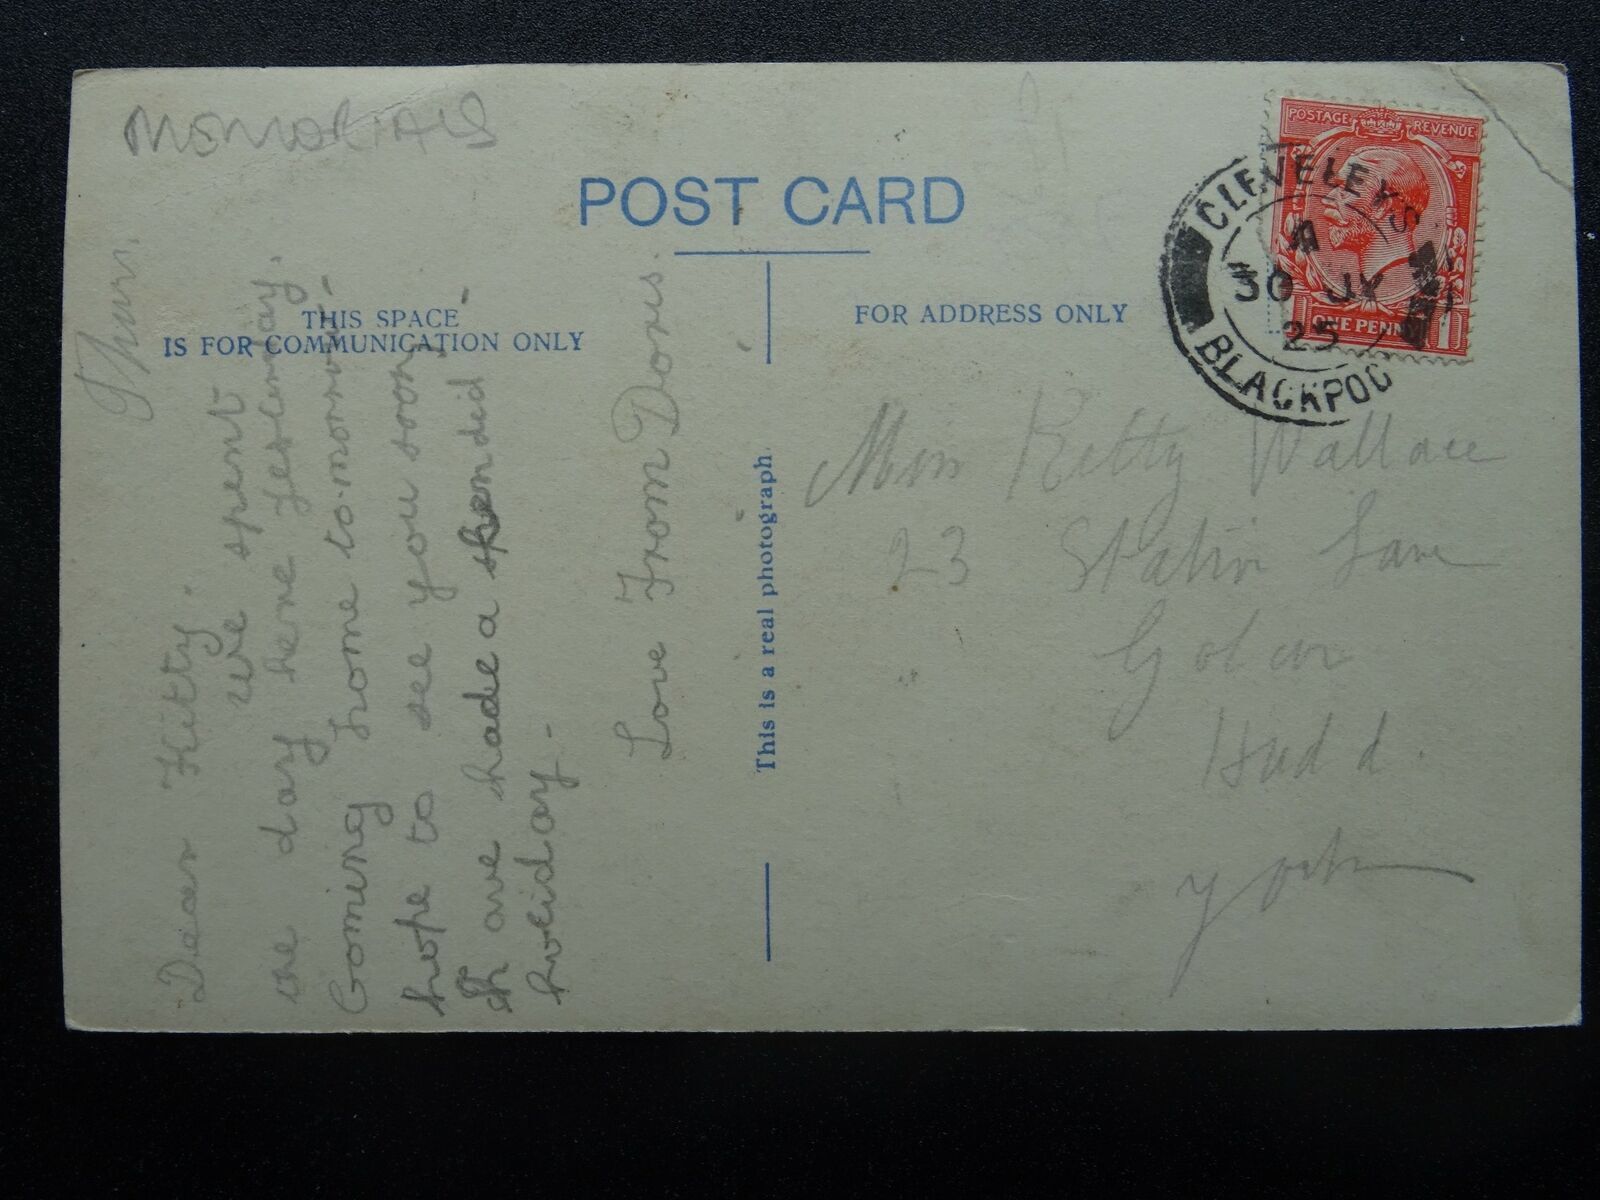 MEMORIALS
POST CARD
THIS SPACE
IS FOR COMMUNICATION ONLY
FOR ADDRESS ONLY
This is a real photograph
POSTAGE REVENUE
ONE PENNY
CLEVELEYS
A
30 JY
25
BLACKPOO
Thurs.
Dear Kitty.
We spent
one day here yesterday.
Coming home to-morrow-
hope to see you soon-
have hade a spendid
holiday-
Love From Doris.
Miss Kitty Wallace
23 Station Lane
Golcar
Hudd.
Yorks